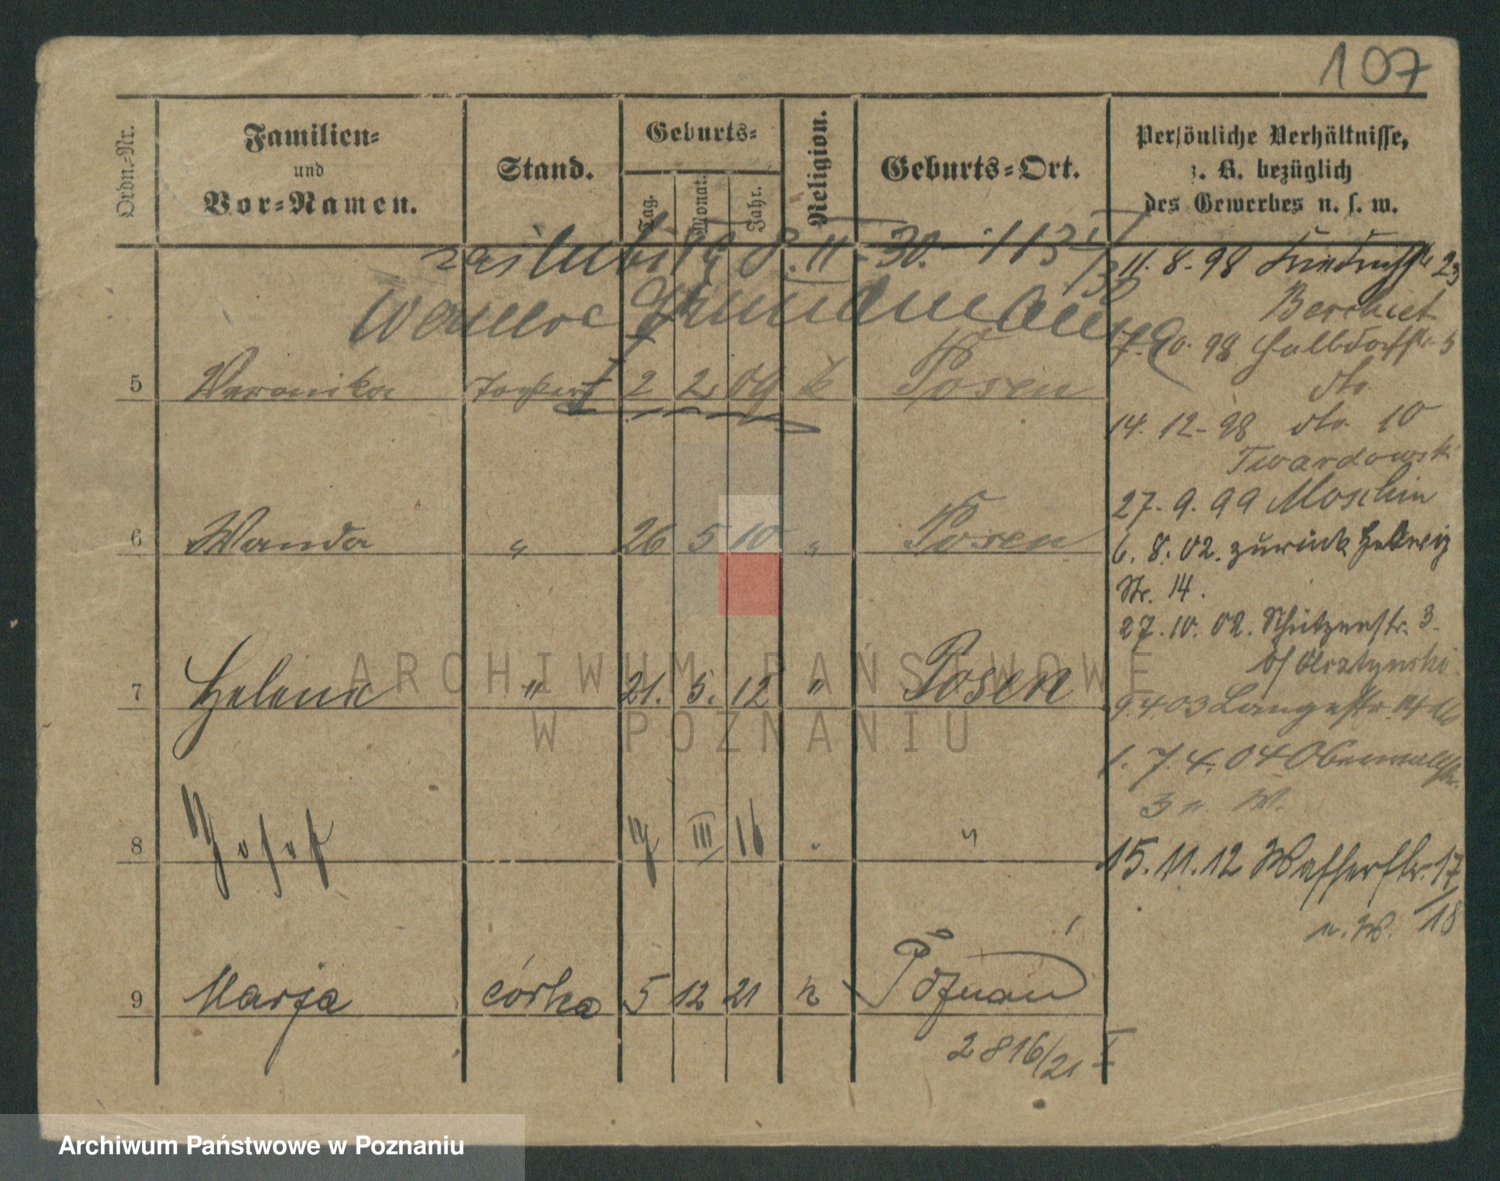 107
Ordn.-Nr.
Familien-
und
Vor-Namen.
Stand.
Geburts-
Tag.
Monat.
Jahr.
Religion.
Geburts-Ort.
Persönliche Verhältnisse,
z. B. bezüglich
des Gewerbes u. s. w.
8. II. 30.
11. 8. 98 23
7. 10. 98 Halbdorfstr. 5
5 Veronika Tochter 2 2 09 k Posen
dto
14. 12. 98 dto 10
Twardowski
27. 9. 99 Moschin
6 Wanda " 26 5 10 " Posen
6. 8. 02. zurück Hedwig
Str. 14.
27. 10. 02. Schützenstr. 3.
7 Helena " 21. 5. 12 " Posen
9. 4. 03 Langestr. 14
1. 7. 4. 04 Oberwallstr.
3 n. W.
8 Josef 19 III 16 " "
15. 11. 12 Wasserstr. 17/18
n. W.
9 Marja córka 5 12 21 k Poznań
2816/21 I
ARCHIWUM PAŃSTWOWE
W POZNANIU
Archiwum Państwowe w Poznaniu